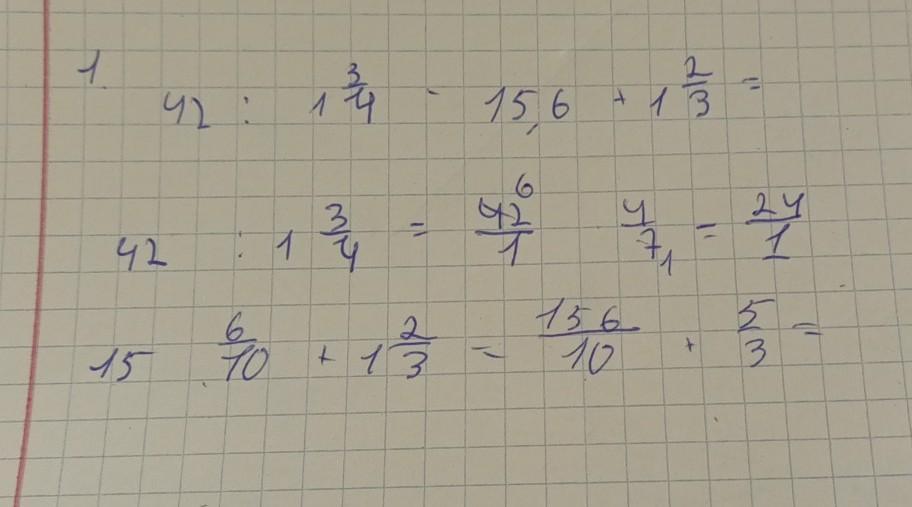 1.
42 : 1 3/4 - 15,6 + 1 2/3 =
42 : 1 3/4 = 42/1 6 4/7 1 = 24/1
15 6/10 + 1 2/3 = 156/10 + 5/3 =